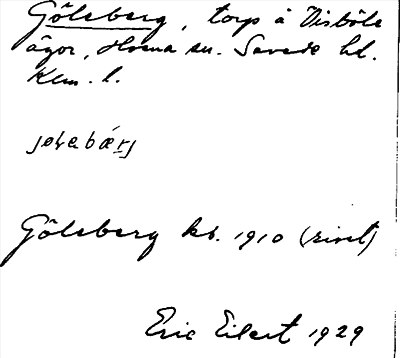 Göleberg, torp å Visböle
ägor, Horna sn. Sevede hd.
Klm. l.
Göleberg kb. 1910 (rivet)
Eric Eilert 1929